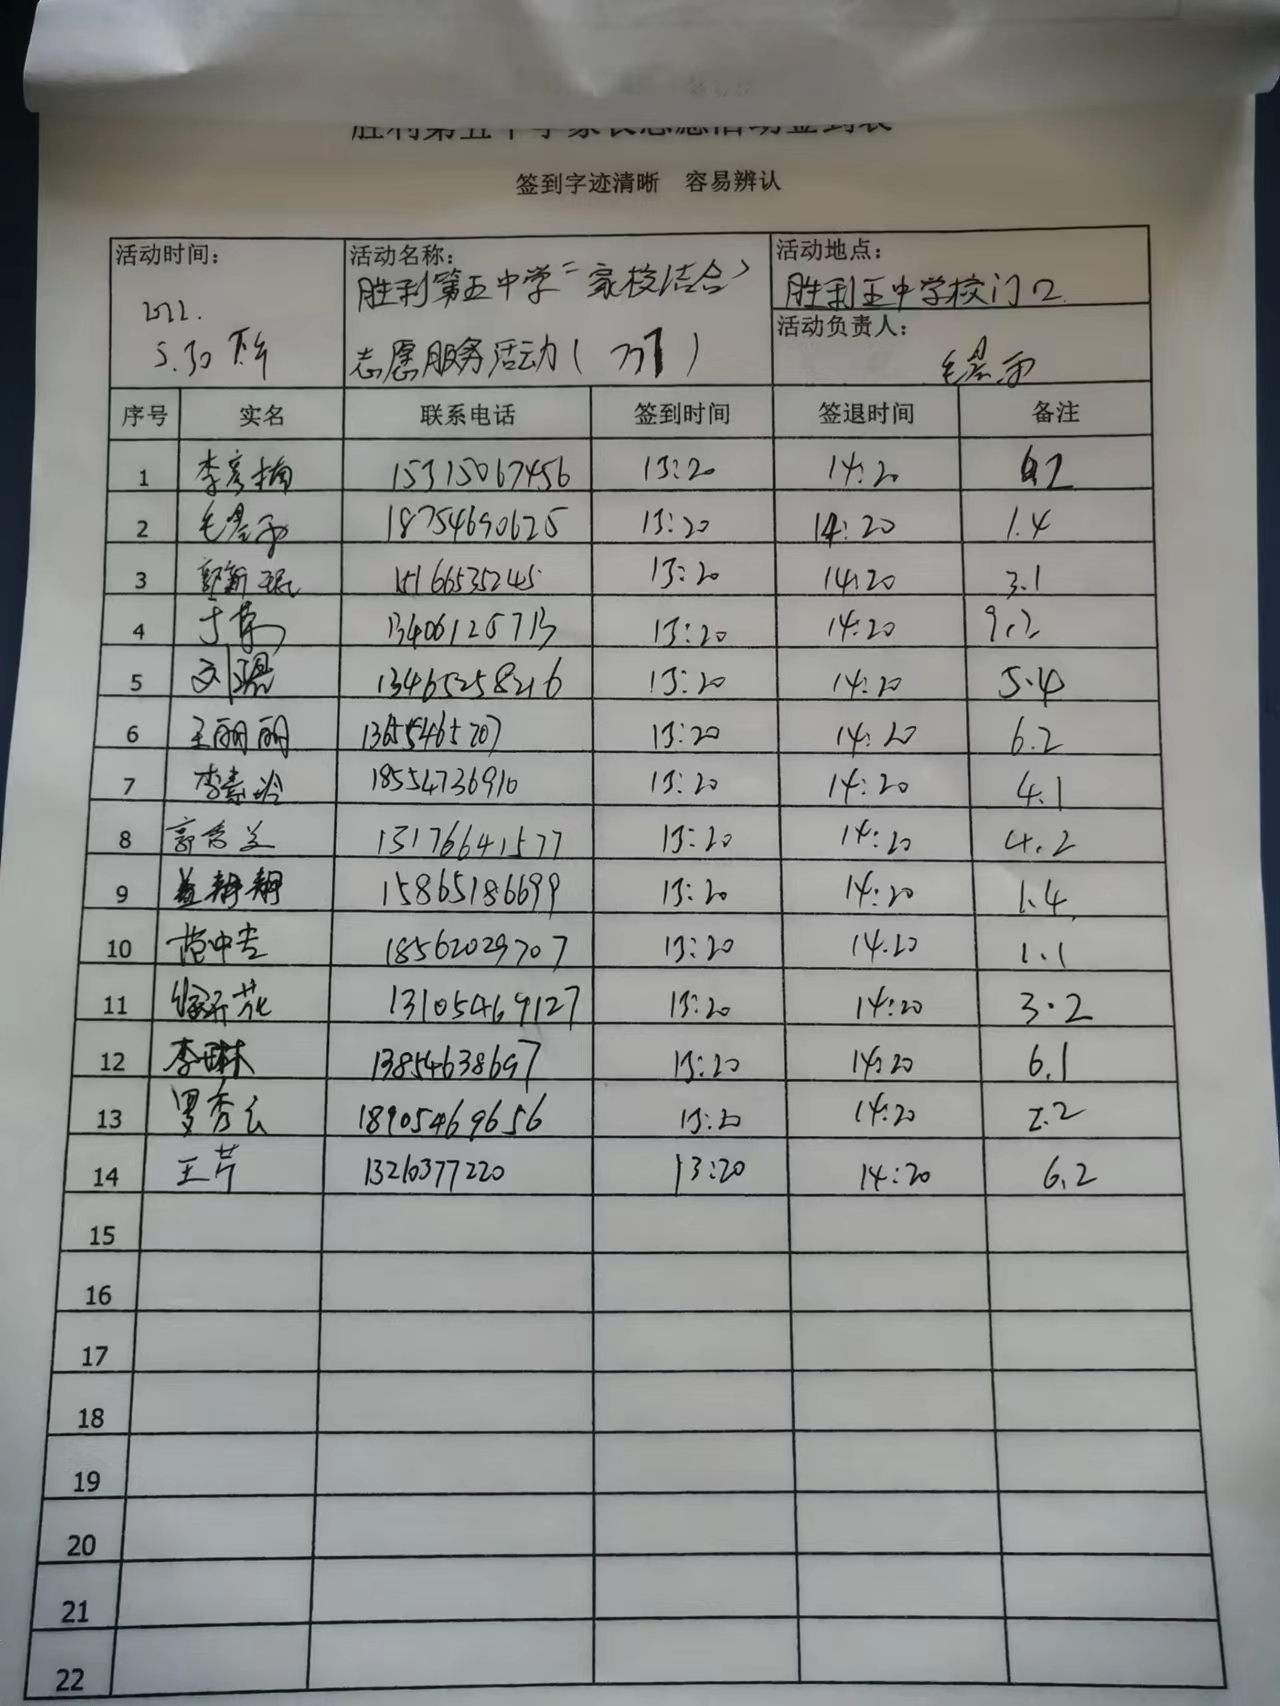 胜利第五中学家长志愿活动签到表
签到字迹清晰 容易辨认
活动时间:
2022.
5.30 下午
活动名称:
胜利第五中学“家校结合”
志愿服务活动( )
活动地点:
胜利五中学校门口
活动负责人:
序号 实名 联系电话 签到时间 签退时间 备注
1 李彦楠 15315067456 13:20 14:20
2 18754690625 13:20 14:20 1.4
3 郭新 15166535245 13:20 14:20 3.1
4 于 13406125713 13:20 14:20 9.2
5 刘 13465258216 13:20 14:20 5.4
6 王丽丽 13655465207 13:20 14:20 6.2
7 李素玲 18554736910 13:20 14:20 4.1
8 郭秀兰 13176641577 13:20 14:20 4.2
9 15865186699 13:20 14:20 1.4
10 范中吉 18562029707 13:20 14.20 1.1
11 花 13105469127 13:20 14:20 3.2
12 李琳 13854638697 13:20 14:20 6.1
13 罗秀云 18905469656 13:20 14:20 2.2
14 王芹 13210377220 13:20 14:20 6.2
15
16
17
18
19
20
21
22